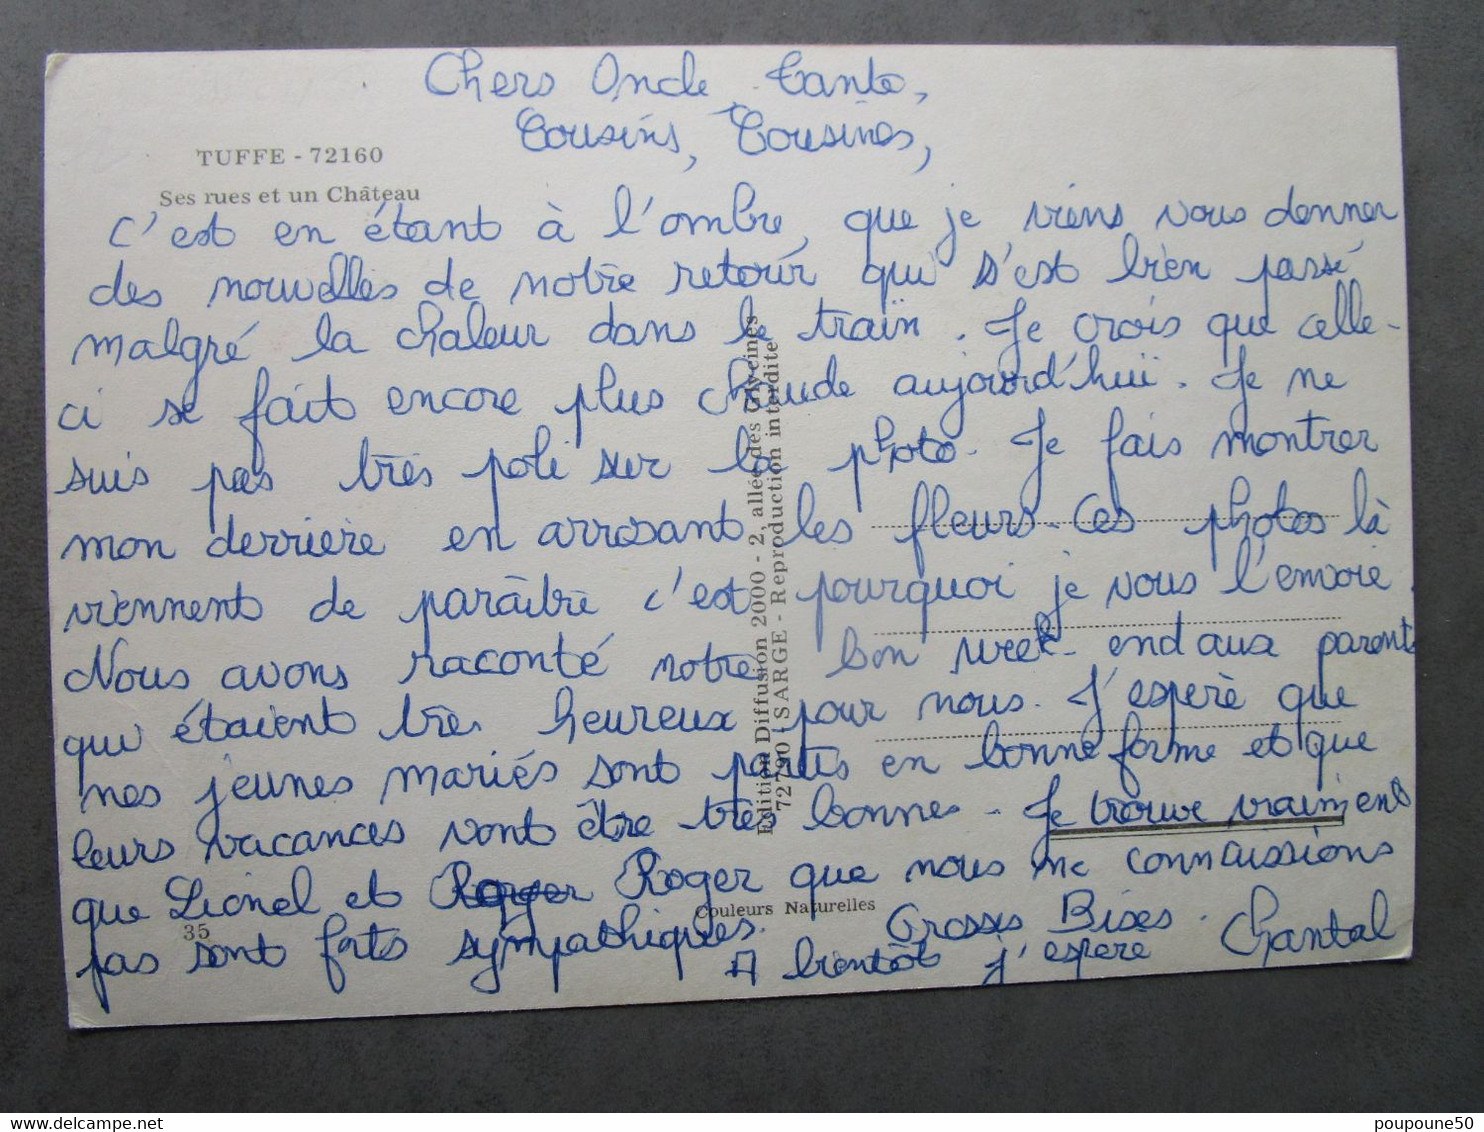 Chers Oncle, Tante,
Cousins, Cousines,
TUFFE - 72160
Ses rues et un Château
C'est en étant à l'ombre, que je viens vous donner
des nouvelles de notre retour qui s'est bien passé
malgré la chaleur dans le train. Je crois que celle-
ci se fait encore plus chaude aujourd'hui. Je ne
suis pas très poli sur la photo. Je fais montrer
mon derrière en arrosant les fleurs. Ces photos là
viennent de paraître c'est pourquoi je vous l'envoie
Nous avons raconté notre bon week-end aux parents
qui étaient très heureux pour nous. J'espère que
nos jeunes mariés sont partis en bonne forme et que
leurs vacances vont être très bonnes. Je trouve vraiment
que Lionel et Roger Roger que nous ne connaissions
pas sont forts sympathiques. Grosses Bises.
A bientôt j'espère Chantal
Edition Diffusion 2000 - 2, allée des Glycines
72790 SARGE - Reproduction interdite
Couleurs Naturelles
35
poupoune50